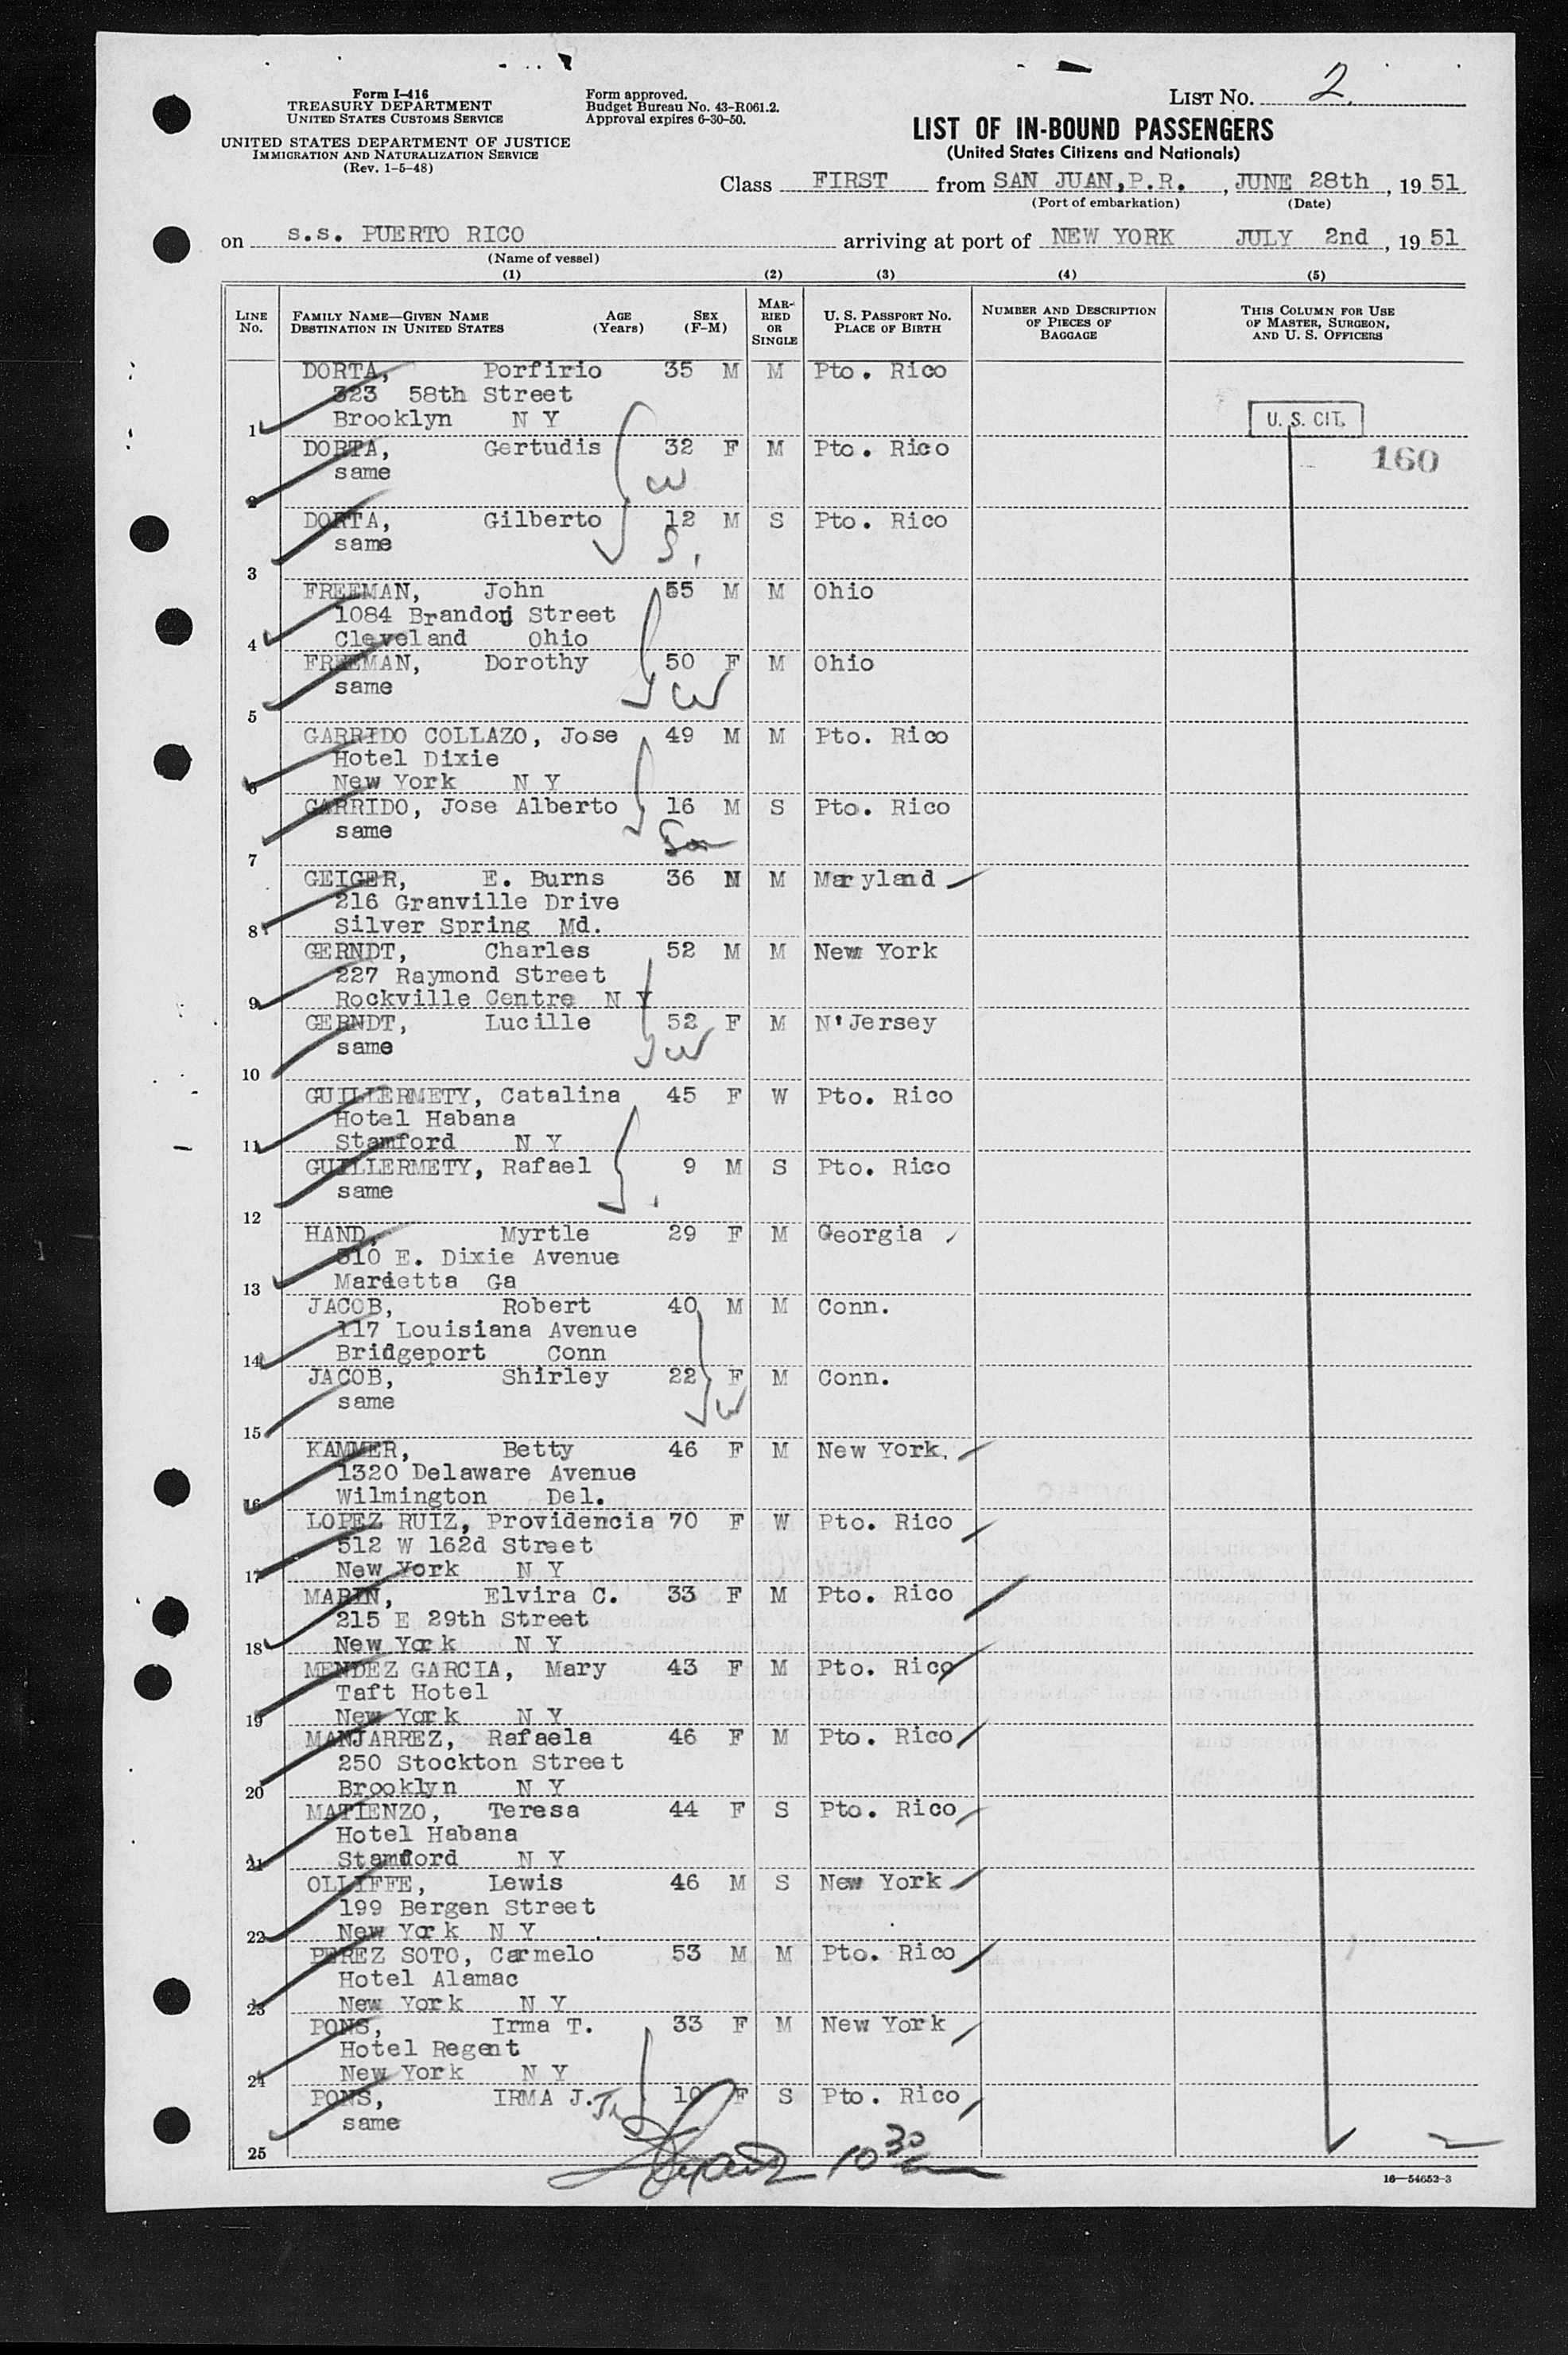 Form I-416
TREASURY DEPARTMENT
UNITED STATES CUSTOMS SERVICE
UNITED STATES DEPARTMENT OF JUSTICE
IMMIGRATION AND NATURALIZATION SERVICE
(Rev. 1-5-48)
Form approved.
Budget Bureau No. 43-R061.2.
Approval expires 6-30-50.
LIST No. 2.
LIST OF IN-BOUND PASSENGERS
(United States Citizens and Nationals)
Class FIRST from SAN JUAN,P.R. , JUNE 28th , 19 51
(Port of embarkation) (Date)
on s.s. PUERTO RICO arriving at port of NEW YORK JULY 2nd , 19 51
(Name of vessel)
(1) (2) (3) (4) (5)
LINE No. FAMILY NAME—GIVEN NAME DESTINATION IN UNITED STATES AGE (Years) SEX (F-M) MARRIED OR SINGLE U. S. PASSPORT No. PLACE OF BIRTH NUMBER AND DESCRIPTION OF PIECES OF BAGGAGE THIS COLUMN FOR USE OF MASTER, SURGEON, AND U. S. OFFICERS
DORTA, Porfirio 35 M M Pto. Rico
323 58th Street
1 Brooklyn N Y U. S. CIT.
DORTA, Gertudis 32 F M Pto. Rico 160
same W
2
DORTA, Gilberto 12 M S Pto. Rico
same S.
3
FREEMAN, John 55 M M Ohio
1084 Brandon Street
4 Cleveland Ohio
FREEMAN, Dorothy 50 F M Ohio
same W
5
GARRIDO COLLAZO, Jose 49 M M Pto. Rico
Hotel Dixie
6 New York N Y
GARRIDO, Jose Alberto 16 M S Pto. Rico
same Son
7
GEIGER, E. Burns 36 M M Maryland
216 Granville Drive
8 Silver Spring Md.
GERNDT, Charles 52 M M New York
227 Raymond Street
9 Rockville Centre N Y
GERNDT, Lucille 52 F M N'Jersey
same W
10
GUILLERMETY, Catalina 45 F W Pto. Rico
Hotel Habana
11 Stamford N Y
GUILLERMETY, Rafael 9 M S Pto. Rico
same
12
HAND, Myrtle 29 F M Georgia
510 E. Dixie Avenue
13 Marietta Ga
JACOB, Robert 40 M M Conn.
117 Louisiana Avenue
14 Bridgeport Conn
JACOB, Shirley 22 F M Conn.
same W
15
KAMMER, Betty 46 F M New York.
1320 Delaware Avenue
16 Wilmington Del.
LOPEZ RUIZ, Providencia 70 F W Pto. Rico
512 W 162d Street
17 New York N Y
MARIN, Elvira C. 33 F M Pto. Rico
215 E 29th Street
18 New York N Y
MENDEZ GARCIA, Mary 43 F M Pto. Rico
Taft Hotel
19 New York N Y
MANJARREZ, Rafaela 46 F M Pto. Rico
250 Stockton Street
20 Brooklyn N Y
MATIENZO, Teresa 44 F S Pto. Rico
Hotel Habana
21 Stamford N Y
OLLIFFE, Lewis 46 M S New York
199 Bergen Street
22 New York N Y
PEREZ SOTO, Carmelo 53 M M Pto. Rico
Hotel Alamac
23 New York N Y
PONS, Irma T. 33 F M New York
Hotel Regent
24 New York N Y
PONS, IRMA J. 10 F S Pto. Rico
same
25
10 30
16—54652-3